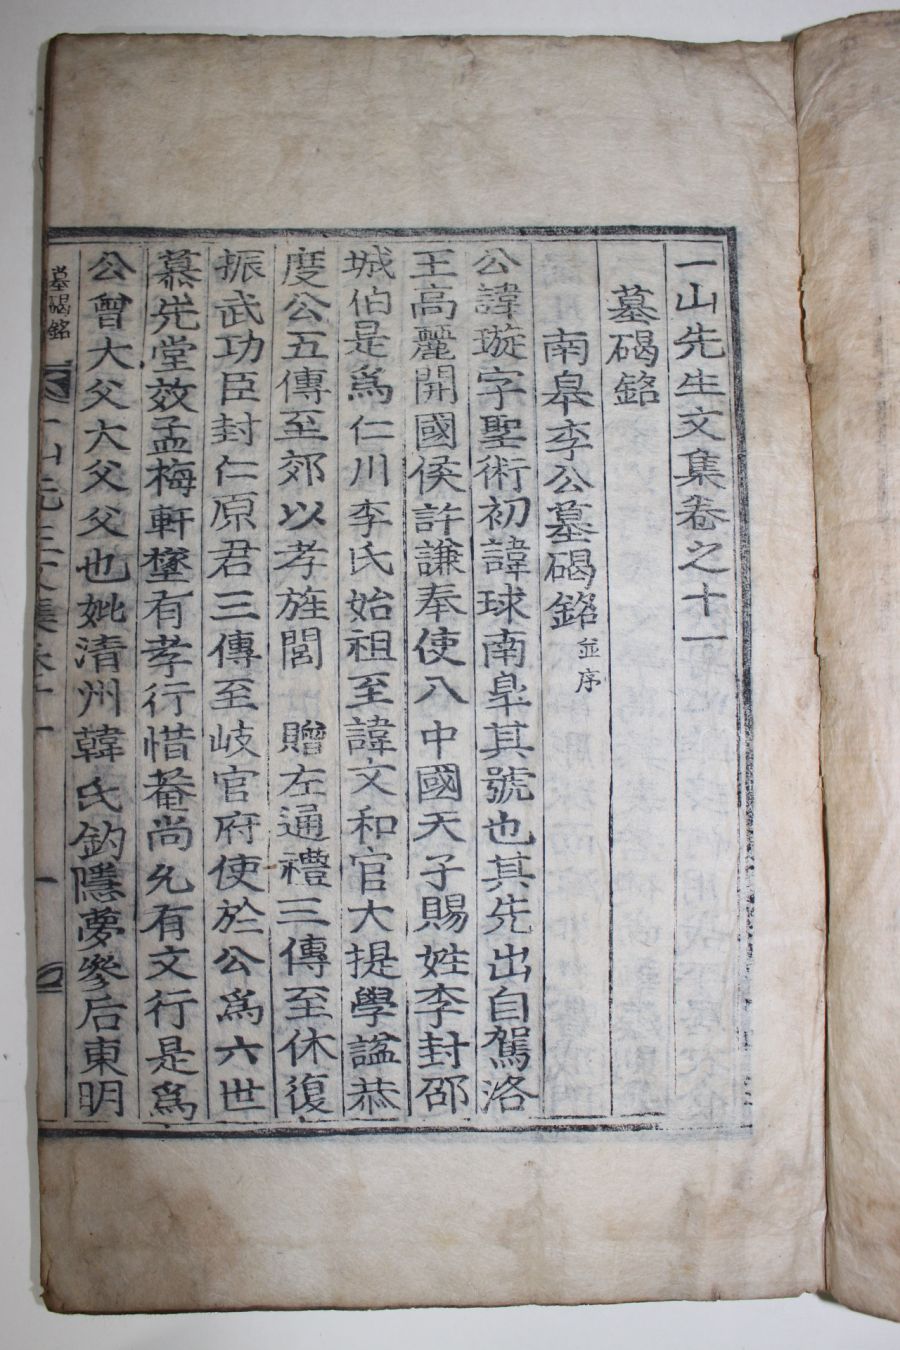 一山先生文集卷之十一
墓碣銘
南皐李公墓碣銘 並序
公諱璇字聖術初諱球南皐其號也其先出自駕洛
王高麗開國侯許謙奉使入中國天子賜姓李封邵
城伯是爲仁川李氏始祖至諱文和官大提學諡恭
度公五傳至郊以孝旌閭 贈左通禮三傳至休復
振武功臣封仁原君三傳至岐官府使於公爲六世
慕先堂效孟梅軒墜有孝行惜菴尚允有文行是爲
公曾大父大父父也妣清州韓氏釣隱夢參后東明
墓碣銘
一山先生文集 卷十一
一